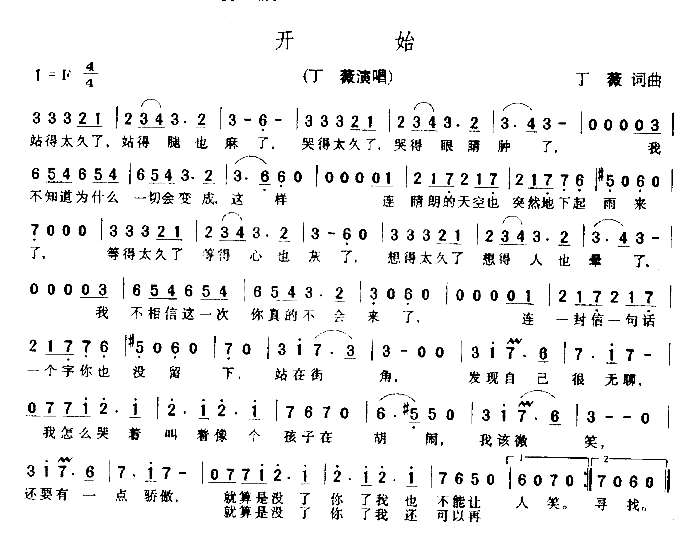 开 始
1=F 4/4 (丁 薇演唱) 丁 薇 词曲
3 3 3 2 1 | 2 3 4 3. 2 | 3 - 6 - | 3 3 3 2 1 | 2 3 4 3. 2 | 3. 4 3 - | 0 0 0 0 3 |
站得太久了，站得 腿也 麻了，哭得太久了，哭得 眼睛 肿 了， 我
6 5 4 6 5 4 | 6 5 4 3. 2 | 3. 6 6 0 | 0 0 0 0 1 | 2 1 7 2 1 7 | 2 1 7 7 6 | #5 0 6 0 |
不知道为什么 一切会变成，这 样 连 晴朗的天空也 突然地下起 雨来
7 0 0 0 | 3 3 3 2 1 | 2 3 4 3. 2 | 3 - 6 0 | 3 3 3 2 1 | 2 3 4 3. 2 | 3. 4 3 - |
了， 等得太久了 等得 心也 灰了，想得太久了 想得 人也 晕 了，
0 0 0 0 3 | 6 5 4 6 5 4 | 6 5 4 3. 2 | 3 0 6 0 | 0 0 0 0 1 | 2 1 7 2 1 7 |
我 不相信这一次 你真的不 会 来了， 连 一封信一句话
2 1 7 7 6 | #5 0 6 0 | 7 0 | 3 1 7. 3 | 3 - - 0 | 3 1 7. 6 | 7. 1 7 - |
一个字你也 没留 下，站在街 角， 发现自己 很 无聊，
0 7 7 1 2. 1 | 2. 1 2. 1 | 7 6 7 0 | 6. #5 5 0 | 3 1 7. 6 | 3 - - 0 |
我怎么哭着 叫着像个 孩子在 胡 闹，我该微 笑，
3 1 7. 6 | 7. 1 7 - | 0 7 7 1 2. 1 | 2. 1 2. 1 | 7 6 5 0 | 6 0 7 0 :| 7 0 6 0 ||
还要有 一 点 骄傲， 就算是没了 你了我也 不能让 人笑。寻找。
就算是没了 你了我还 可以再